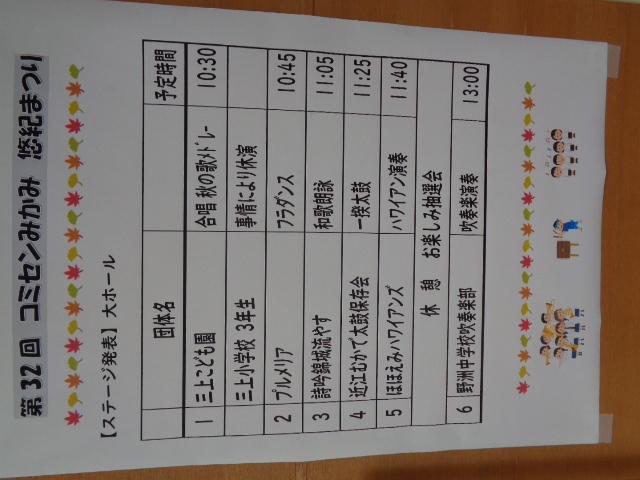 第32回 コミセンみかみ 悠紀まつり
【ステージ発表】大ホール
団体名 予定時間
1 三上こども園 合唱 秋の歌メドレー 10:30
三上小学校 3年生 事情により休演
2 プルメリア フラダンス 10:45
3 詩吟錦城流やす 和歌朗詠 11:05
4 近江むかで太鼓保存会 一揆太鼓 11:25
5 ほほえみハワイアンズ ハワイアン演奏 11:40
休 憩 お楽しみ抽選会
6 野洲中学校吹奏楽部 吹奏楽演奏 13:00